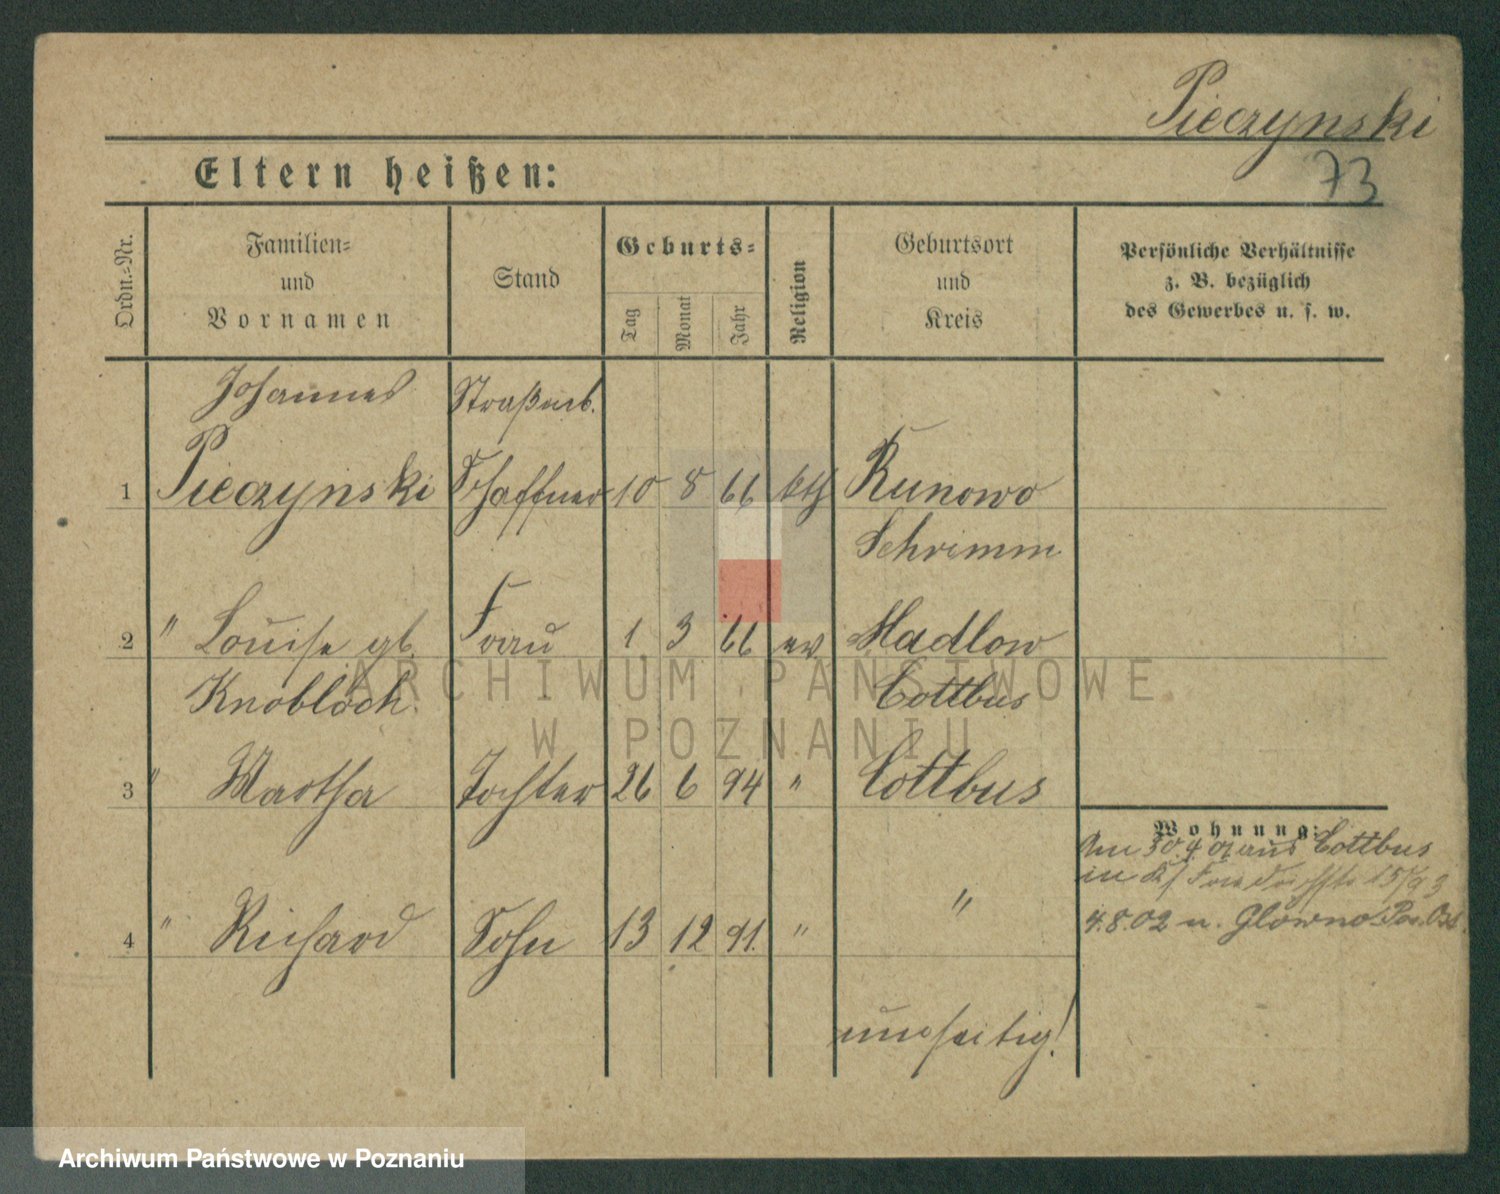 Pieczynski
73
Eltern heißen:
Ordn.-Nr.
Familien-
und
Vornamen
Stand
Geburts-
Tag
Monat
Jahr
Religion
Geburtsort
und
Kreis
Persönliche Verhältnisse
z. B. bezüglich
des Gewerbes u. s. w.
Johannes Straßenb.
1 Pieczynski Schaffner 10 8 66 kth Kunowo
Schrimm
2 " Louise gb. Frau 1 3 66 ev Madlow
Knobloch. Cottbus
3 " Martha Tochter 26 6 94 " Cottbus
Wohnung:
Am 30.4.01 aus Cottbus
in
4.8.02 n. Glowno Pos. Ost.
4 " Richard Sohn 13 12 91. " "
umseitig!
ARCHIWUM PAŃSTWOWE
W POZNANIU
Archiwum Państwowe w Poznaniu